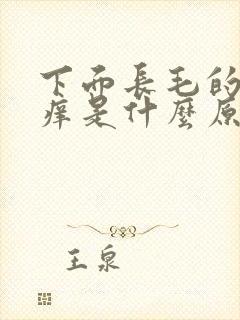 下面長毛的
癢是什麼原
王泉